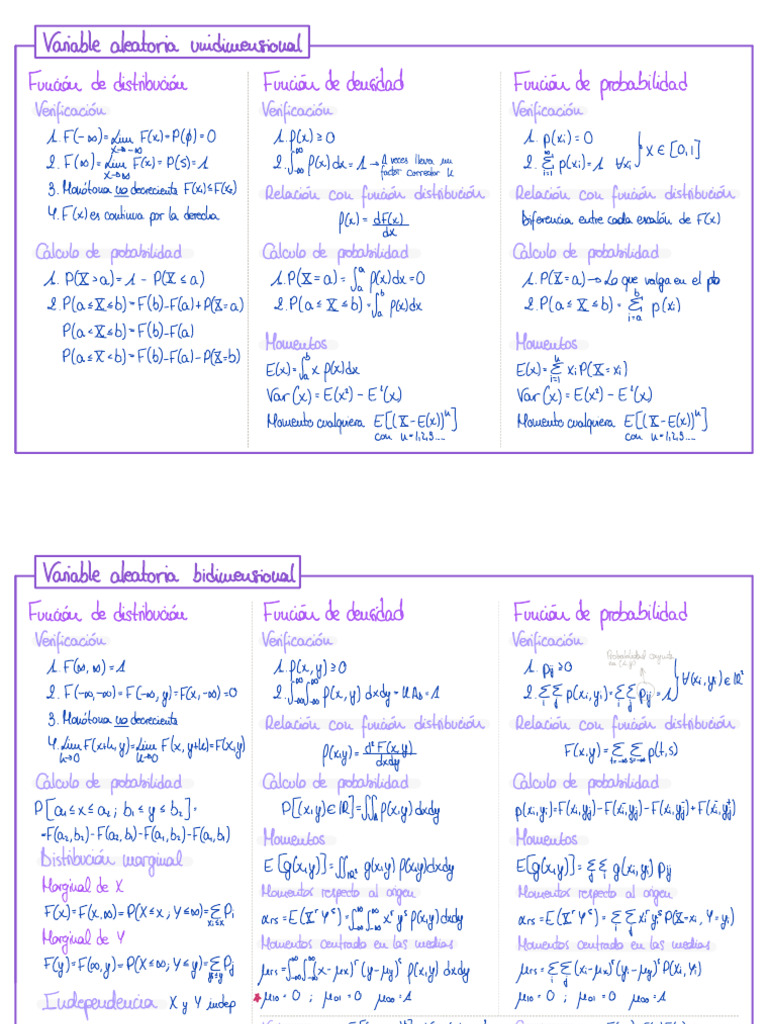 Variable aleatoria unidimensional
Función de distribución
Verificación
1. F(-∞) = Lim x→-∞ F(x) = P(∅) = 0
2. F(∞) = Lim x→∞ F(x) = P(S) = 1
3. Monótona no decreciente F(x₁) ≤ F(x₂)
4. F(x) es continua por la derecha
Cálculo de probabilidad
1. P(X > a) = 1 - P(X ≤ a)
2. P(a ≤ X ≤ b) = F(b) - F(a) + P(X = a)
P(a < X ≤ b) = F(b) - F(a)
P(a < X < b) = F(b) - F(a) - P(X = b)
Función de densidad
Verificación
1. f(x) ≥ 0
2. ∫_{-∞}^{∞} f(x) dx = 1 → A veces lleva un
factor corrector k
Relación con función distribución
f(x) = dF(x)/dx
Cálculo de probabilidad
1. P(X = a) = ∫_a^a f(x) dx = 0
2. P(a ≤ X ≤ b) = ∫_a^b f(x) dx
Momentos
E(x) = ∫_a^b x f(x) dx
Var(x) = E(x²) - E²(x)
Momento cualquiera E[(X - E(x))^k]
con k = 1,2,3....
Función de probabilidad
Verificación
1. p(xi) = 0
2. Σ_{i=1}^{∞} p(xi) = 1 ∀xi } x ∈ [0,1]
Relación con función distribución
Diferencia entre cada escalón de F(x)
Cálculo de probabilidad
1. P(X = a) → Lo que valga en el pto
2. P(a ≤ X ≤ b) = Σ_{i=a}^{b} p(xi)
Momentos
E(x) = Σ_{i=1}^{k} xi P(X = xi)
Var(x) = E(x²) - E²(x)
Momento cualquiera E[(X - E(x))^k]
con k = 1,2,3....
Variable aleatoria bidimensional
Función de distribución
Verificación
1. F(∞, ∞) = 1
2. F(-∞,-∞) = F(-∞, y) = F(x, -∞) = 0
3. Monótona no decreciente
4. Lim h→0 F(x+h, y) = Lim k→0 F(x, y+k) = F(x, y)
Cálculo de probabilidad
P[a₁ ≤ x ≤ a₂ ; b₁ ≤ y ≤ b₂] =
=F(a₂,b₂) - F(a₂,b₁) - F(a₁,b₂) - F(a₁,b₁)
Distribución marginal
Marginal de X
F(x) = F(x, ∞) = P(X ≤ x ; Y ≤ ∞) = Σ_{xi≤x} Pi
Marginal de Y
F(y) = F(∞, y) = P(X ≤ ∞ ; Y ≤ y) = Σ_{yj≤y} Pj
Independencia X y Y indep
Función de densidad
Verificación
1. f(x, y) ≥ 0
2. ∫_{-∞}^{∞} ∫_{-∞}^{∞} f(x, y) dxdy = 1
Relación con función distribución
f(x,y) = d²F(x,y)/dxdy
Cálculo de probabilidad
P[(x,y) ∈ IR] = ∬_R f(x,y) dxdy
Momentos
E[g(x,y)] = ∬_{IR²} g(x,y) f(x,y) dxdy
Momentos respecto al origen
αrs = E(X^r Y^s) = ∫_{-∞}^{∞} ∫_{-∞}^{∞} x^r y^s f(x,y) dxdy
Momentos centrado en las medias
μrs = ∫_{-∞}^{∞} ∫_{-∞}^{∞} (x-μx)^r (y-μy)^s f(x,y) dxdy
★ μ10 = 0 ; μ01 = 0 μ00 = 1
Función de probabilidad
Verificación
Probabilidad conjunta
en (x,y)
1. Pij ≥ 0
2. Σi Σj p(xi, yj) = Σi Σj Pij = 1 } ∀(xi, yj) ∈ IR²
Relación con función distribución
F(x,y) = Σ_{t=-∞}^{x} Σ_{s=-∞}^{y} p(t,s)
Cálculo de probabilidad
p(xi,yj) = F(xi,yj) - F(xi⁻,yj) - F(xi,yj⁻) + F(xi⁻,yj⁻)
Momentos
E[g(x,y)] = Σi Σj g(xi,yj) Pij
Momentos respecto al origen
αrs = E(X^r Y^s) = Σi Σj xi^r yj^s P(X = xi, Y = yj)
Momentos centrado en las medias
μrs = Σi Σj (xi-μx)^r (yj-μy)^s P(Xi, Yj)
μ10 = 0 ; μ01 = 0 μ00 = 1